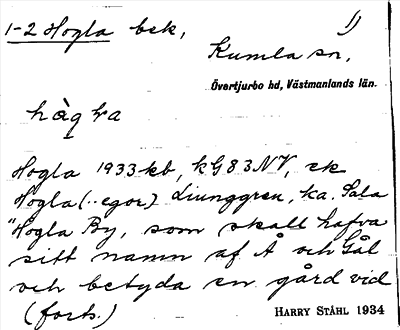 1-2 Hogla bek,
1)
Kumla sn,
Övertjurbo hd, Västmanlands län.
hàgra
Hogla 1933 kb, kG83NV, ek
Hogla (..egor) Liunggren, ka. Sala
"Hogla By, som skall hafva
sitt namn af Å och Gål
och betyda en gård vid
(forts.)
HARRY STÅHL 1934